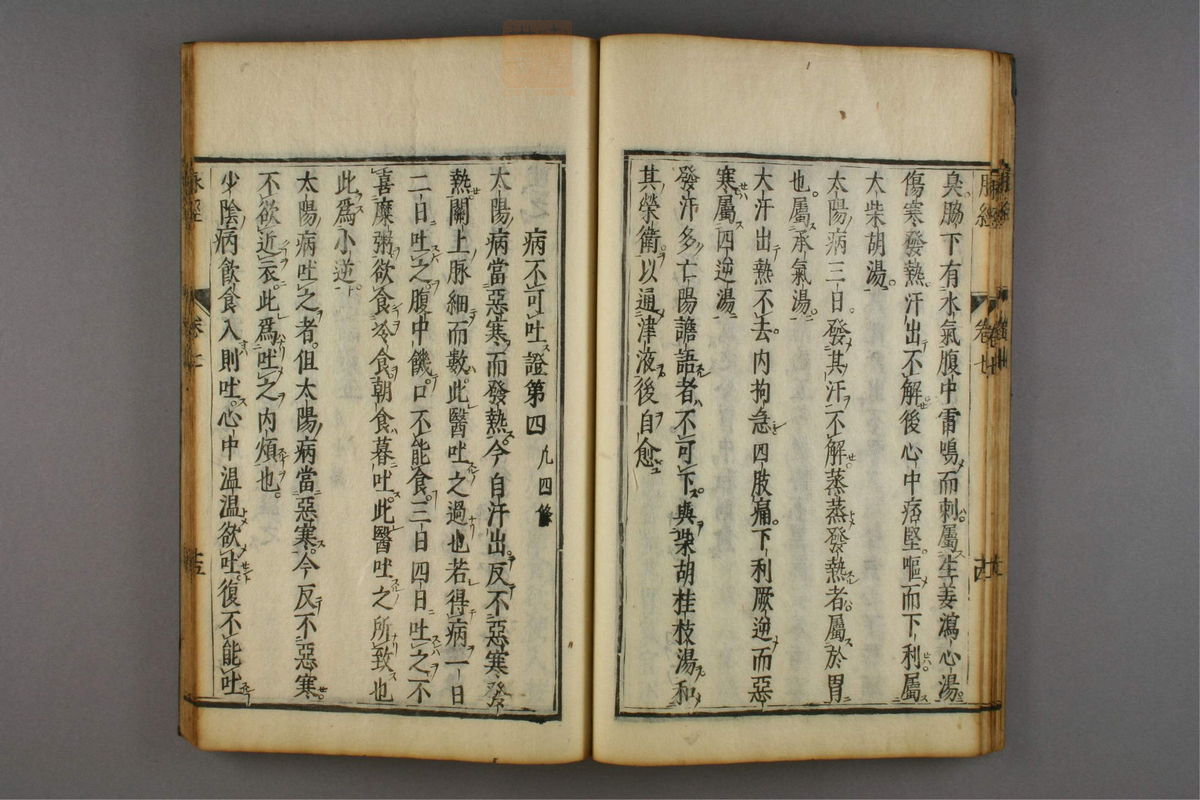 脉經 卷七 十四
臭脇下有水氣腹中雷鳴而利屬生姜瀉心湯
傷寒發熱汗出不解後心中痞堅嘔而下利屬
大柴胡湯
太陽病三日發其汗不解蒸蒸發熱者屬於胃
也屬承氣湯
大汗出熱不去內拘急四肢痛下利厥逆而惡
寒屬四逆湯
發汗多亡陽譫語者不可下與柴胡桂枝湯和
其榮衛以通津液後自愈
病不可吐證第四 凡四條
太陽病當惡寒而發熱今自汗出反不惡寒發
熱關上脉細而數此醫吐之過也若得病一日
二日吐之腹中饑口不能食三日四日吐之不
喜糜粥欲食冷食朝食暮吐此醫吐之所致也
此爲小逆
太陽病吐之者但太陽病當惡寒今反不惡寒
不欲近衣此爲吐之內煩也
少陰病飲食入則吐心中溫溫欲吐復不能吐
脉經 卷七 十五